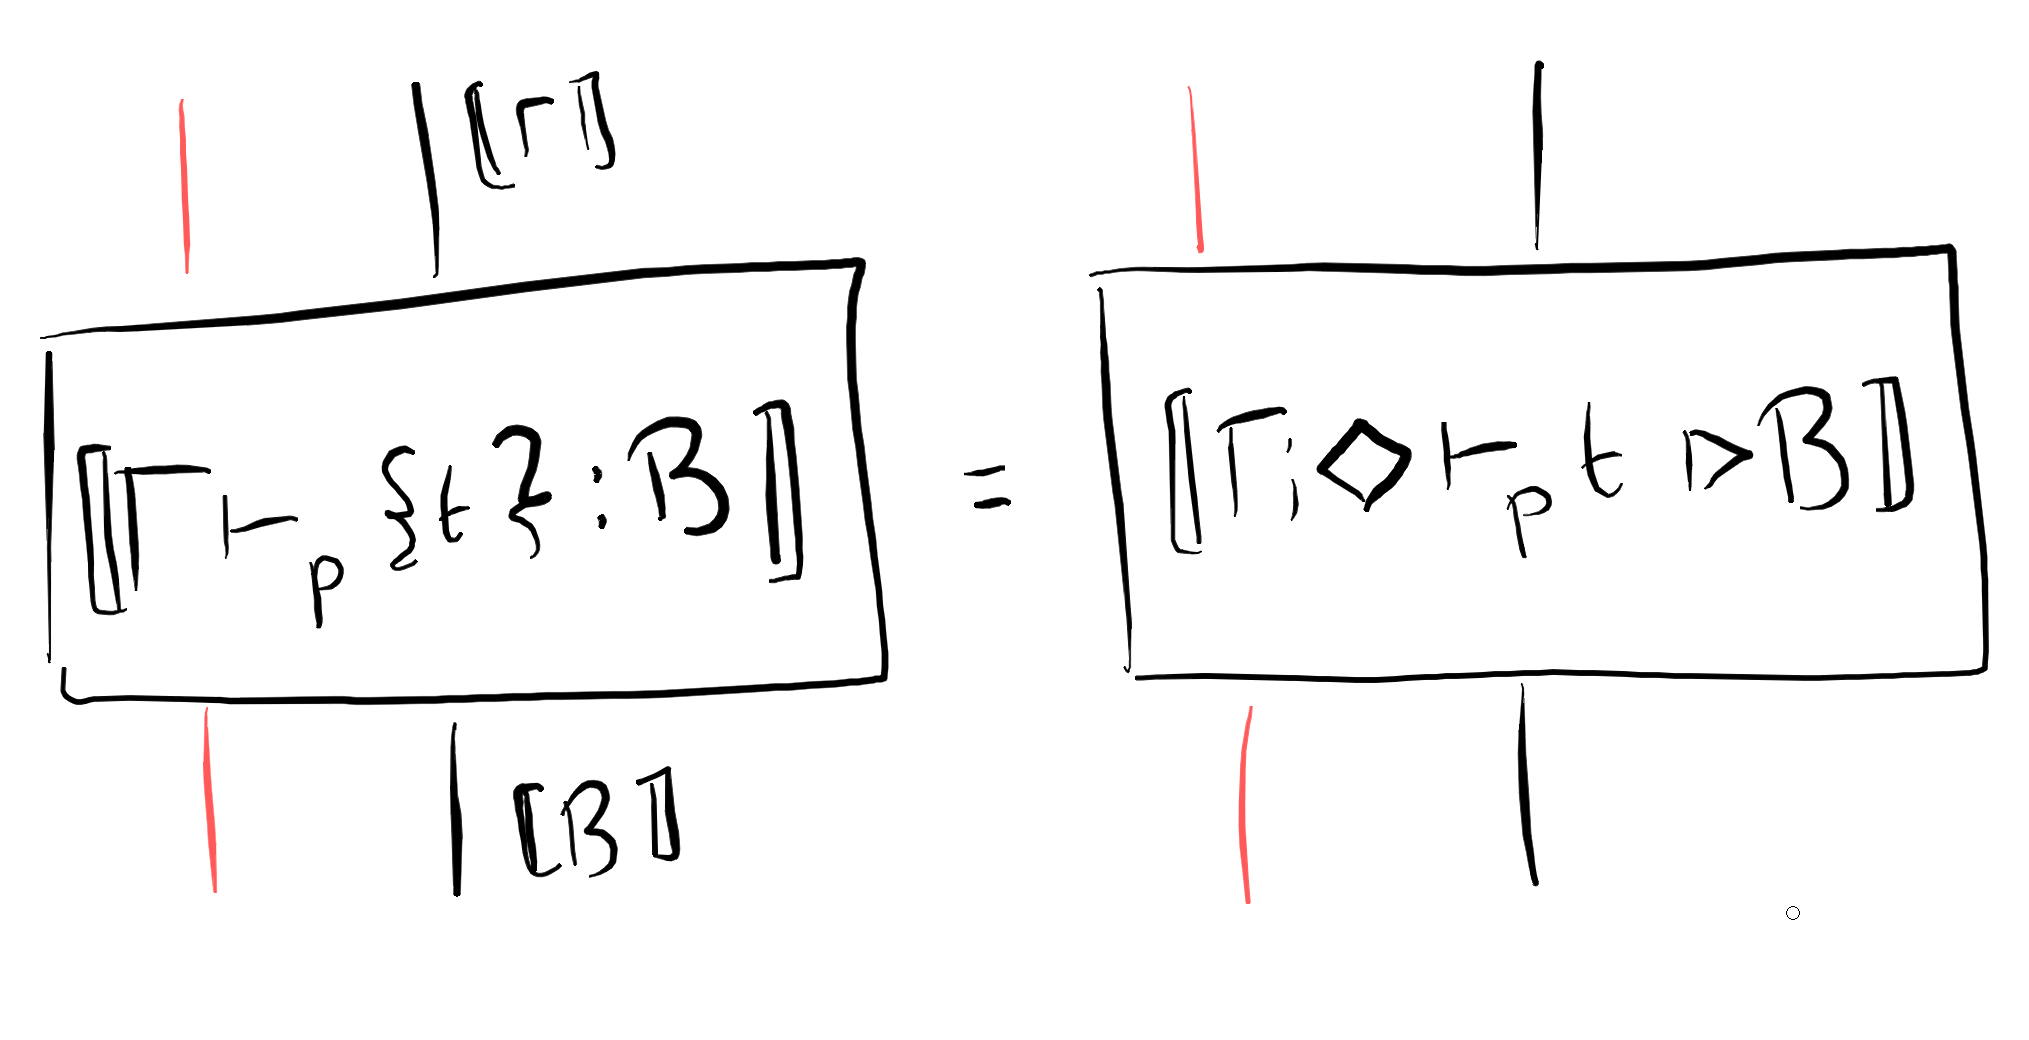 ⟦Γ⟧
⟦Γ ⊢ₚ {t} : B⟧ = ⟦Γ; ◇ ⊢ₚ t ▷ B⟧
⟦B⟧